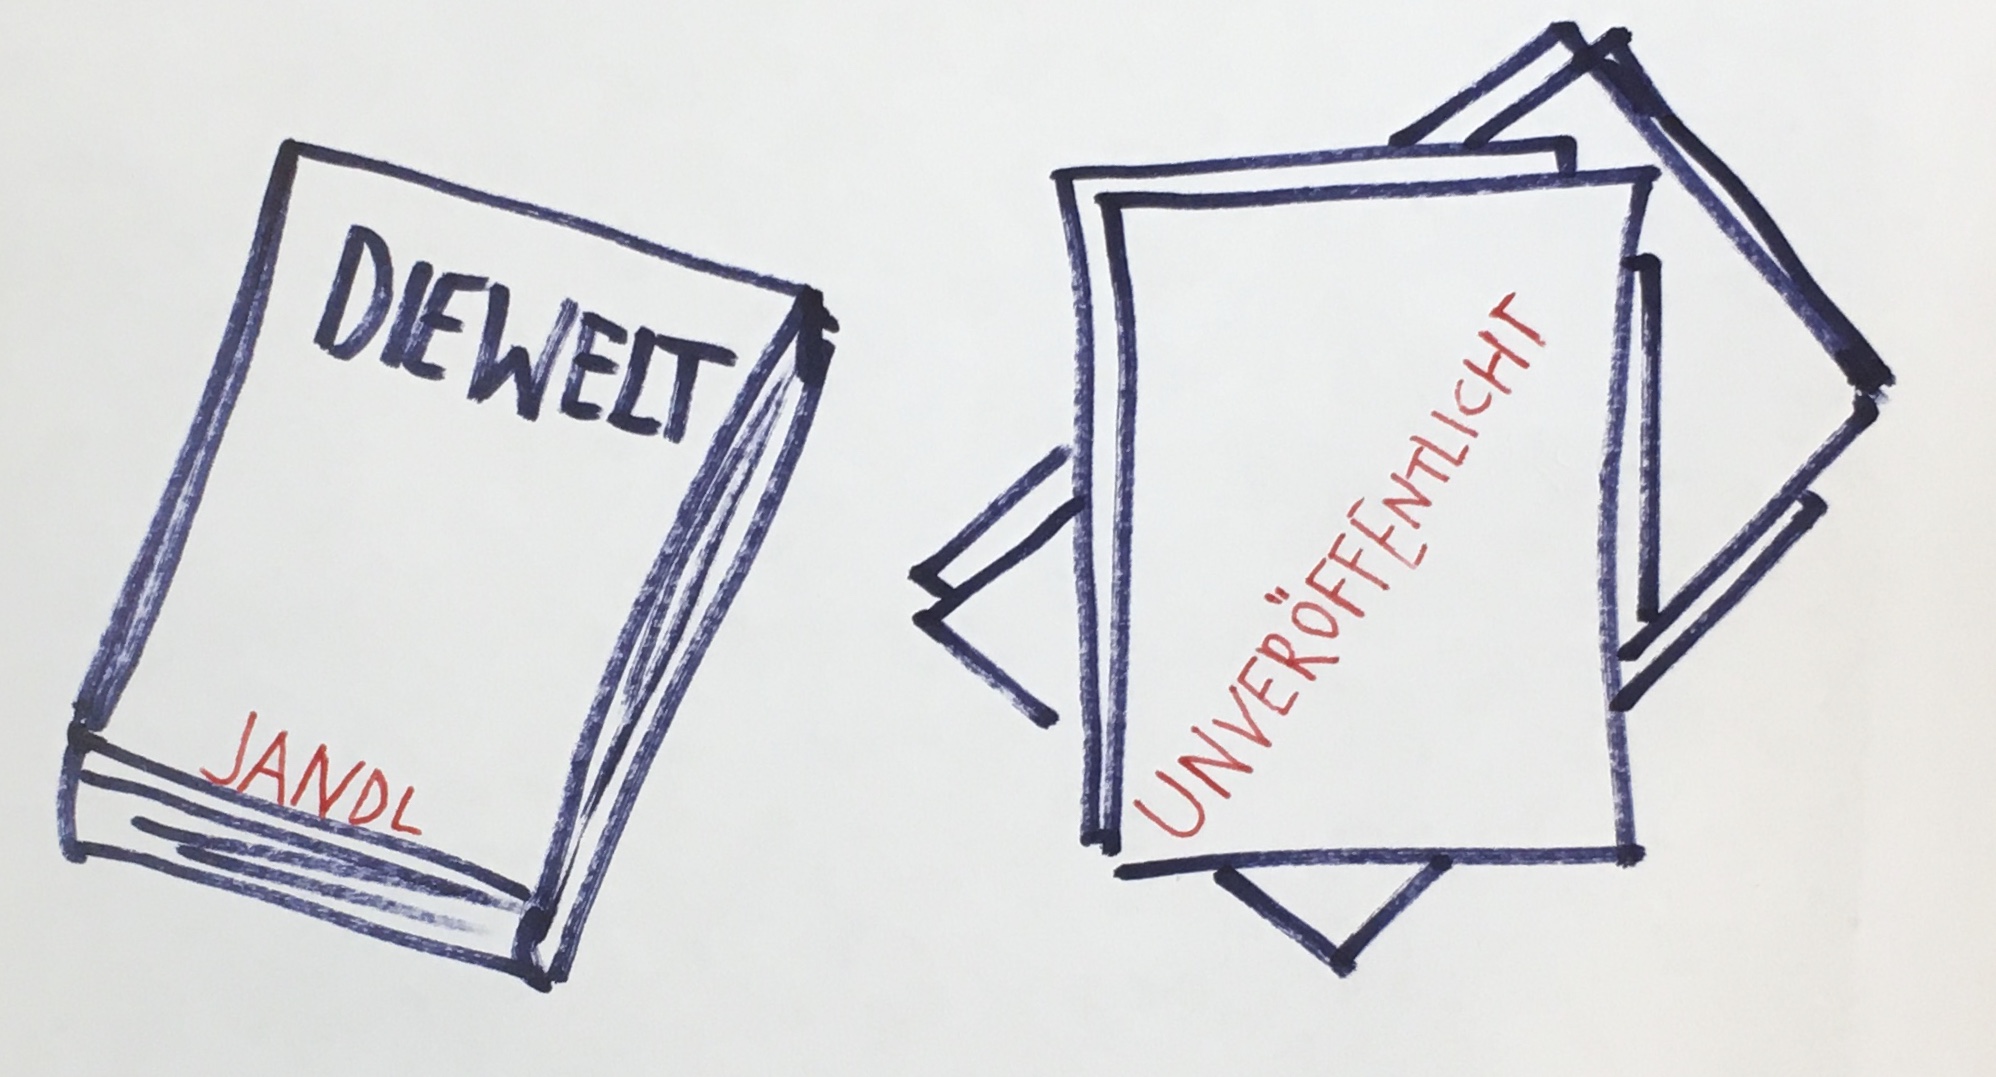 DIE WELT
JANDL
UNVERÖFFENTLICHT